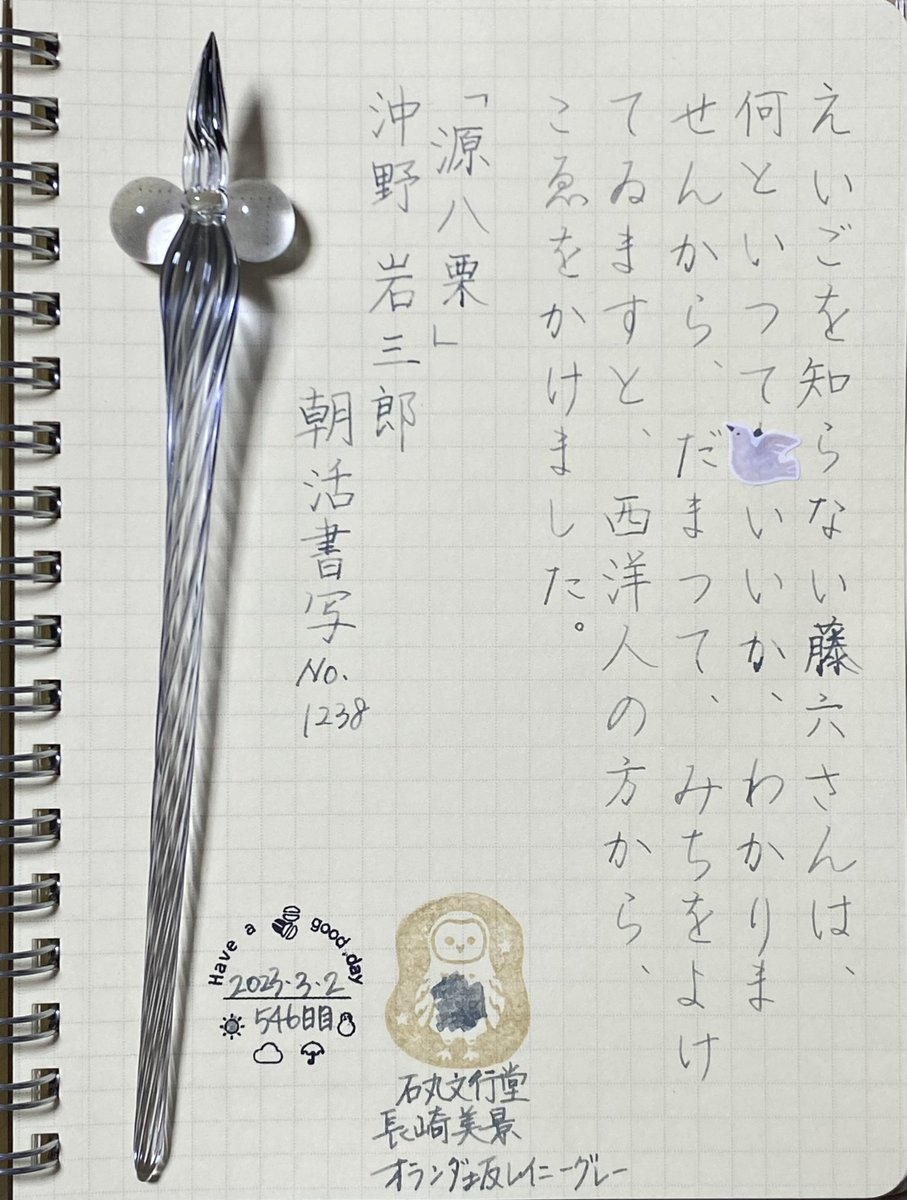 えいごを知らない藤六さんは、
何といつていいか、わかりま
せんから、だまつて、みちをよけ
てゐますと、西洋人の方から、
こゑをかけました。
「源八栗」
沖野岩三郎
朝活書写
No.
1238
Have a good day
2023.3.2
546日目
石丸文行堂
長崎美景
オランダ坂レイニーグレー